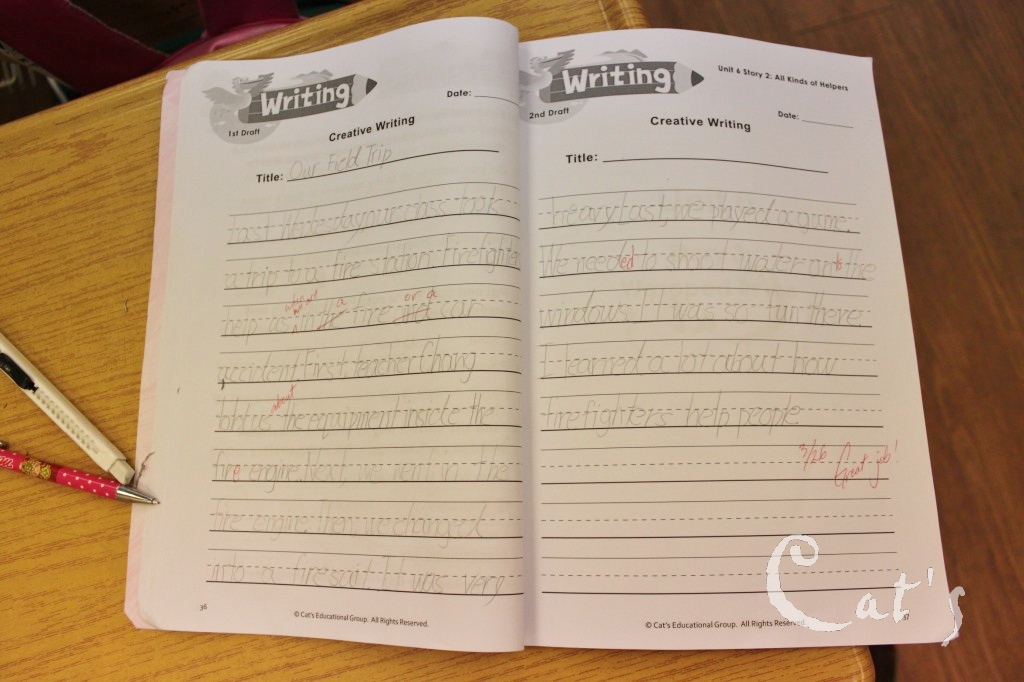 Writing
1st Draft
Date:
Creative Writing
Title: Our Field Trip
Last Wednesday our class took
a trip to a fire station. Firefighter
when we are a or a
help us in the fire and car
accident. First, teacher Chang
about
told us the equipment inside the
fire engine. Next, we went in the
fire engine. Then, we changed
into a fire suit. It was very
36
© Cat's Educational Group. All Rights Reserved.
Writing
2nd Draft
Unit 6 Story 2: All Kinds of Helpers
Date:
Creative Writing
Title:
heavy. Last, we played a game.
We needed to shoot water onto the
windows. It was so fun there.
I learned a lot about how
firefighters help people
3/26 Great job!
© Cat's Educational Group. All Rights Reserved.
37
Cat's